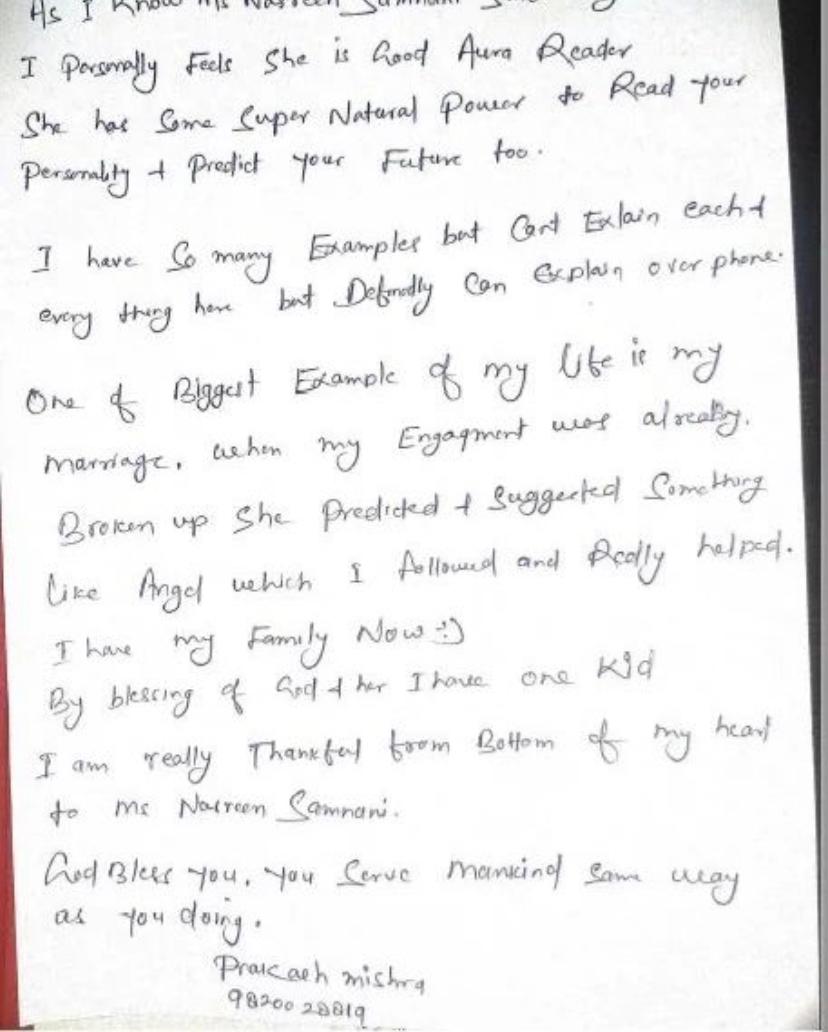 As I Know Ms Nasreen Samnani
I Personally Feels She is Good Aura Reader
She has Some Super Natural Power to Read your
Personality & Predict your Future too.
I have So many Examples but Cant Exlain each &
every thing here but Definedly Can Explain over phone.
One of Biggest Example of my life is my
marriage, when my Engagment was already.
Broken up She Predicted & Suggested Something
Like Angel which I followed and Really helped.
I have my Family Now :)
By blessing of God & her I have one Kid
I am really Thankful from Bottom of my heart
to Ms Nasreen Samnani.
God Bless you, you Serve mankind Same way
as you doing.
Prakash mishra
98200 28819